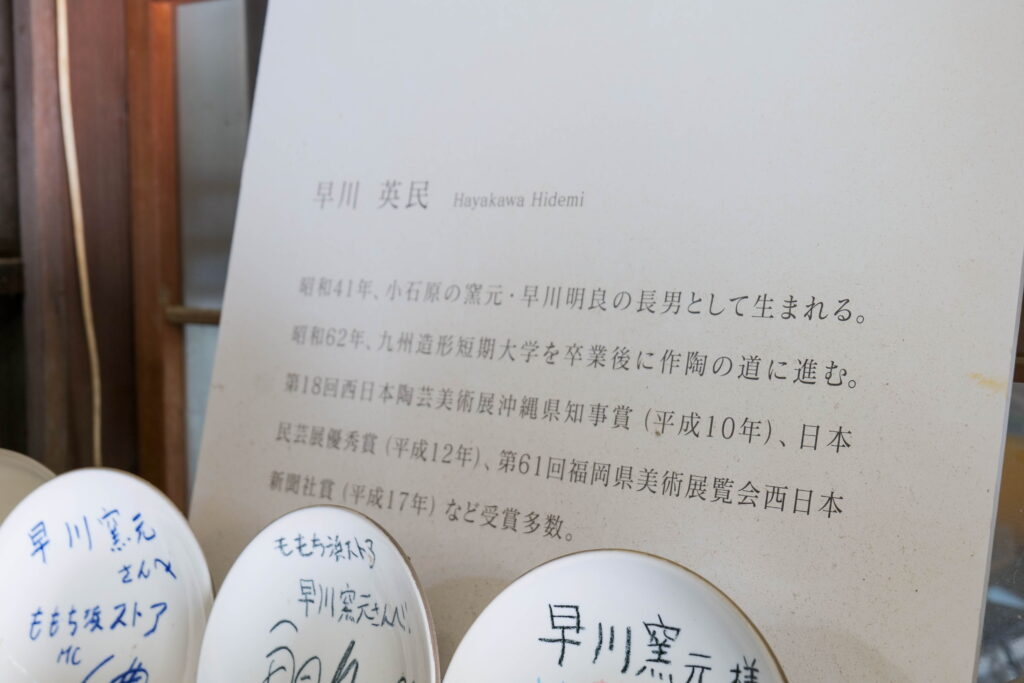 早川 英民 Hayakawa Hidemi
昭和41年、小石原の窯元・早川明良の長男として生まれる。
昭和62年、九州造形短期大学を卒業後に作陶の道に進む。
第18回西日本陶芸美術展沖縄県知事賞 (平成10年)、日本
民芸展優秀賞 (平成12年)、第61回福岡県美術展覧会西日本
新聞社賞 (平成17年) など受賞多数。
早川窯元
さんへ
ももち浜ストア
MC
ももち浜ストア
早川窯元さんへ
早川窯元様